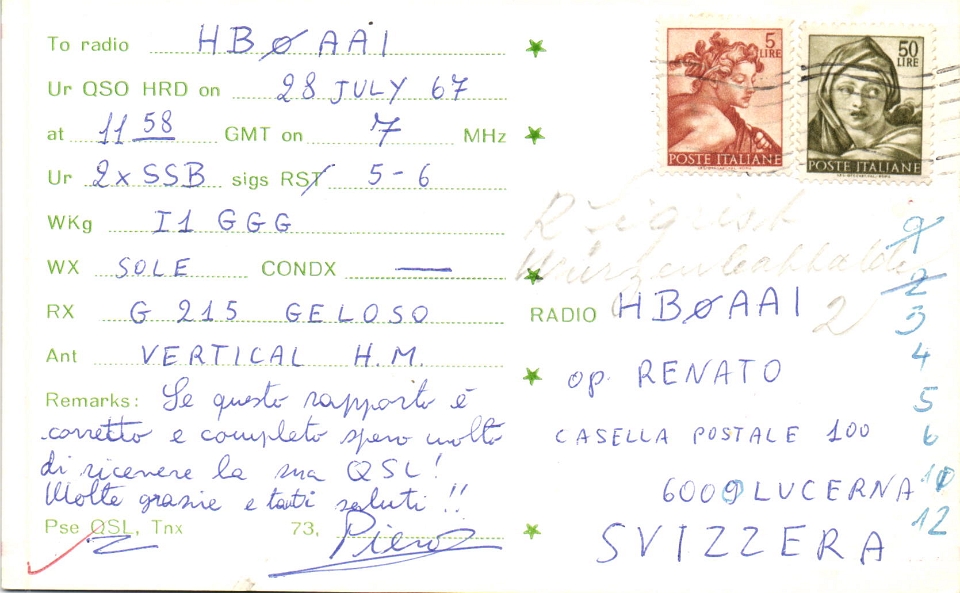 To radio HBØAA1
Ur QSO HRD on 28 JULY 67
at 11 58 GMT on 7 MHz
Ur 2x SSB sigs RST 5-6
WKg I1 GGG
WX SOLE CONDX —
RX G 215 GELOSO
Ant VERTICAL H.M.
Remarks: Se questo rapporto è
corretto e completo spero molto
di ricevere la sua QSL!
Molte grazie e tanti saluti!!
Pse QSL, Tnx 73, Piero
5 LIRE
POSTE ITALIANE
50 LIRE
POSTE ITALIANE
R Sigrist
2
RADIO HBØAA1
op. RENATO
CASELLA POSTALE 100
6009 LUCERNA
SVIZZERA
9
2
3
4
5
6
10
12